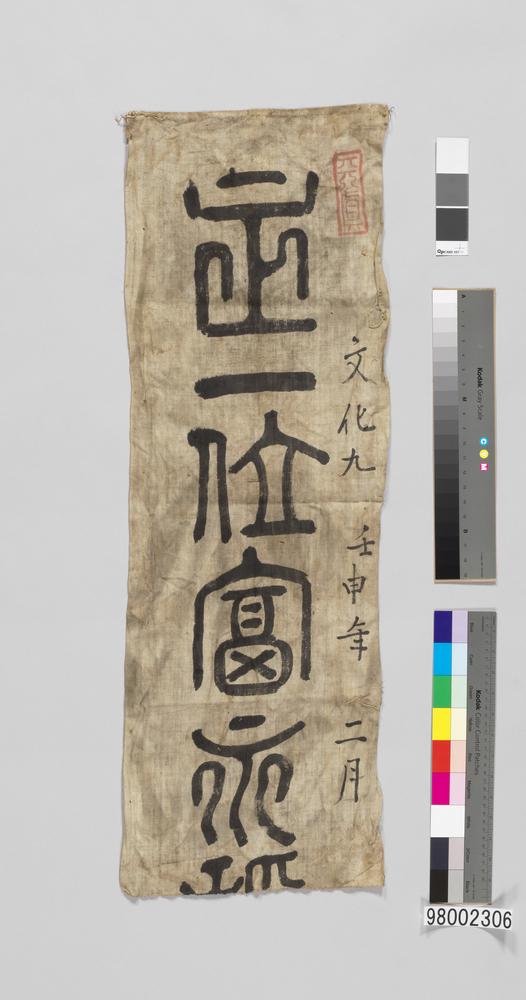 文化九 壬申年 二月
正一位富永
Kodak Gray Scale
C Y M
A
M
B
Kodak Color Control Patches
Blue
Cyan
Green
Yellow
Red
Magenta
White
3/Color
Black
98002306